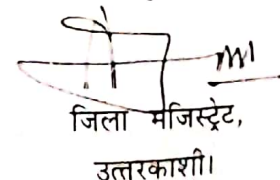 जिला मजिस्ट्रेट,
उत्तरकाशी।